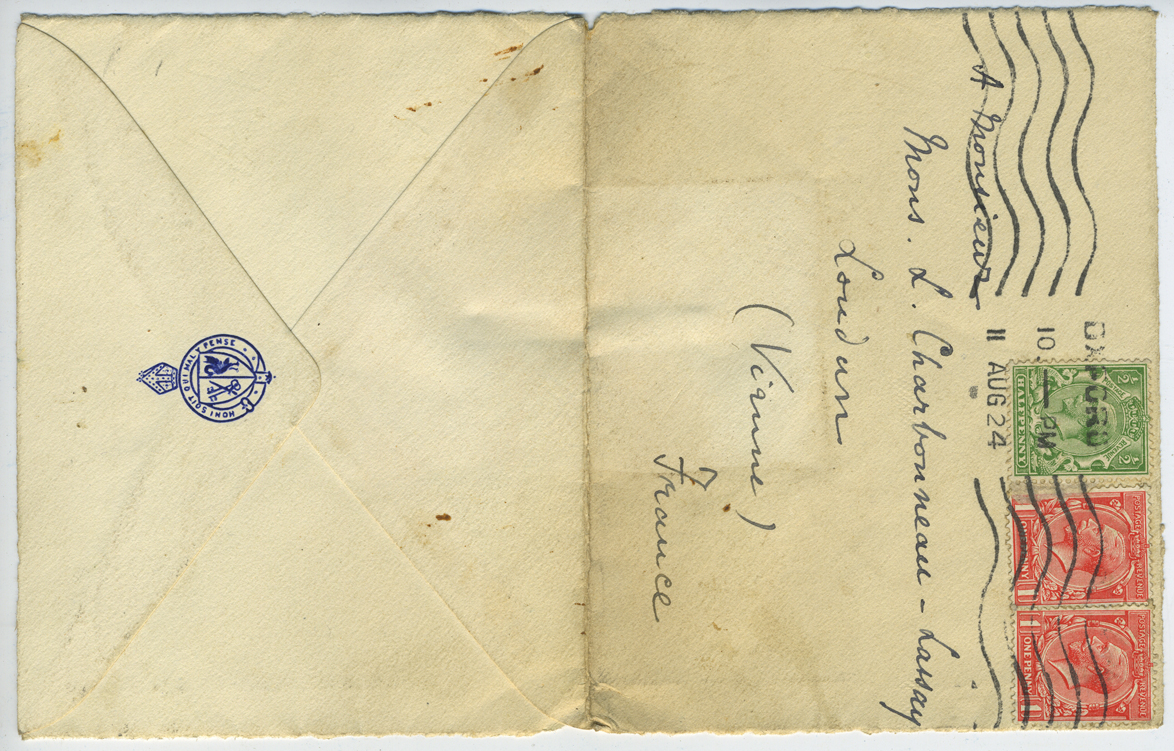 A Monsieur
Mons. L. Charbonneau-Lassay
Loudun
(Vienne)
France
10 — PM
11 AUG 24
½ ½
HALFPENNY
POSTAGE REVENUE
ONE PENNY
POSTAGE REVENUE
1 1
ONE PENNY
HONI SOIT QUI MAL Y PENSE